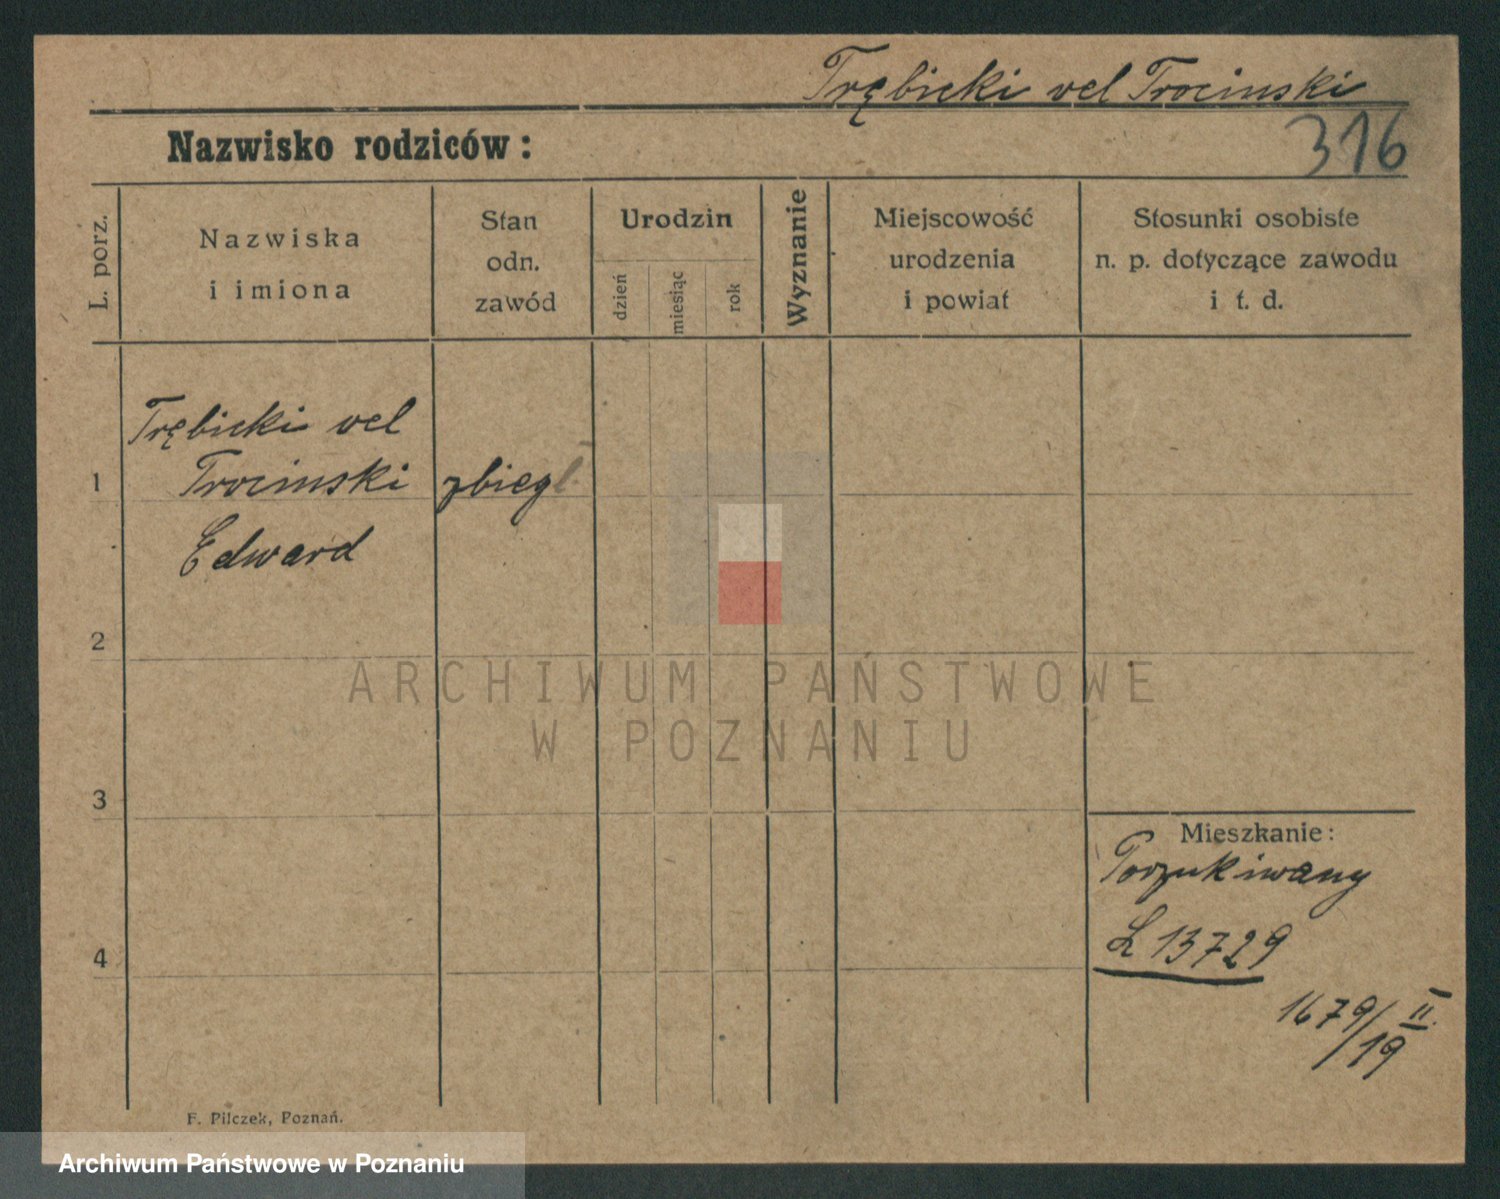 Trębicki vel Trocinski
Nazwisko rodziców:
316
L. porz.
Nazwiska
i imiona
Stan
odn.
zawód
Urodzin
dzień
miesiąc
rok
Wyznanie
Miejscowość
urodzenia
i powiat
Stosunki osobiste
n. p. dotyczące zawodu
i t. d.
1
Trębicki vel
Trocinski
Edward
zbiegł
2
3
4
Mieszkanie:
Poszukiwany
L 13729
1679/II.
19
F. Pilczek, Poznań.
ARCHIWUM PAŃSTWOWE
W POZNANIU
Archiwum Państwowe w Poznaniu